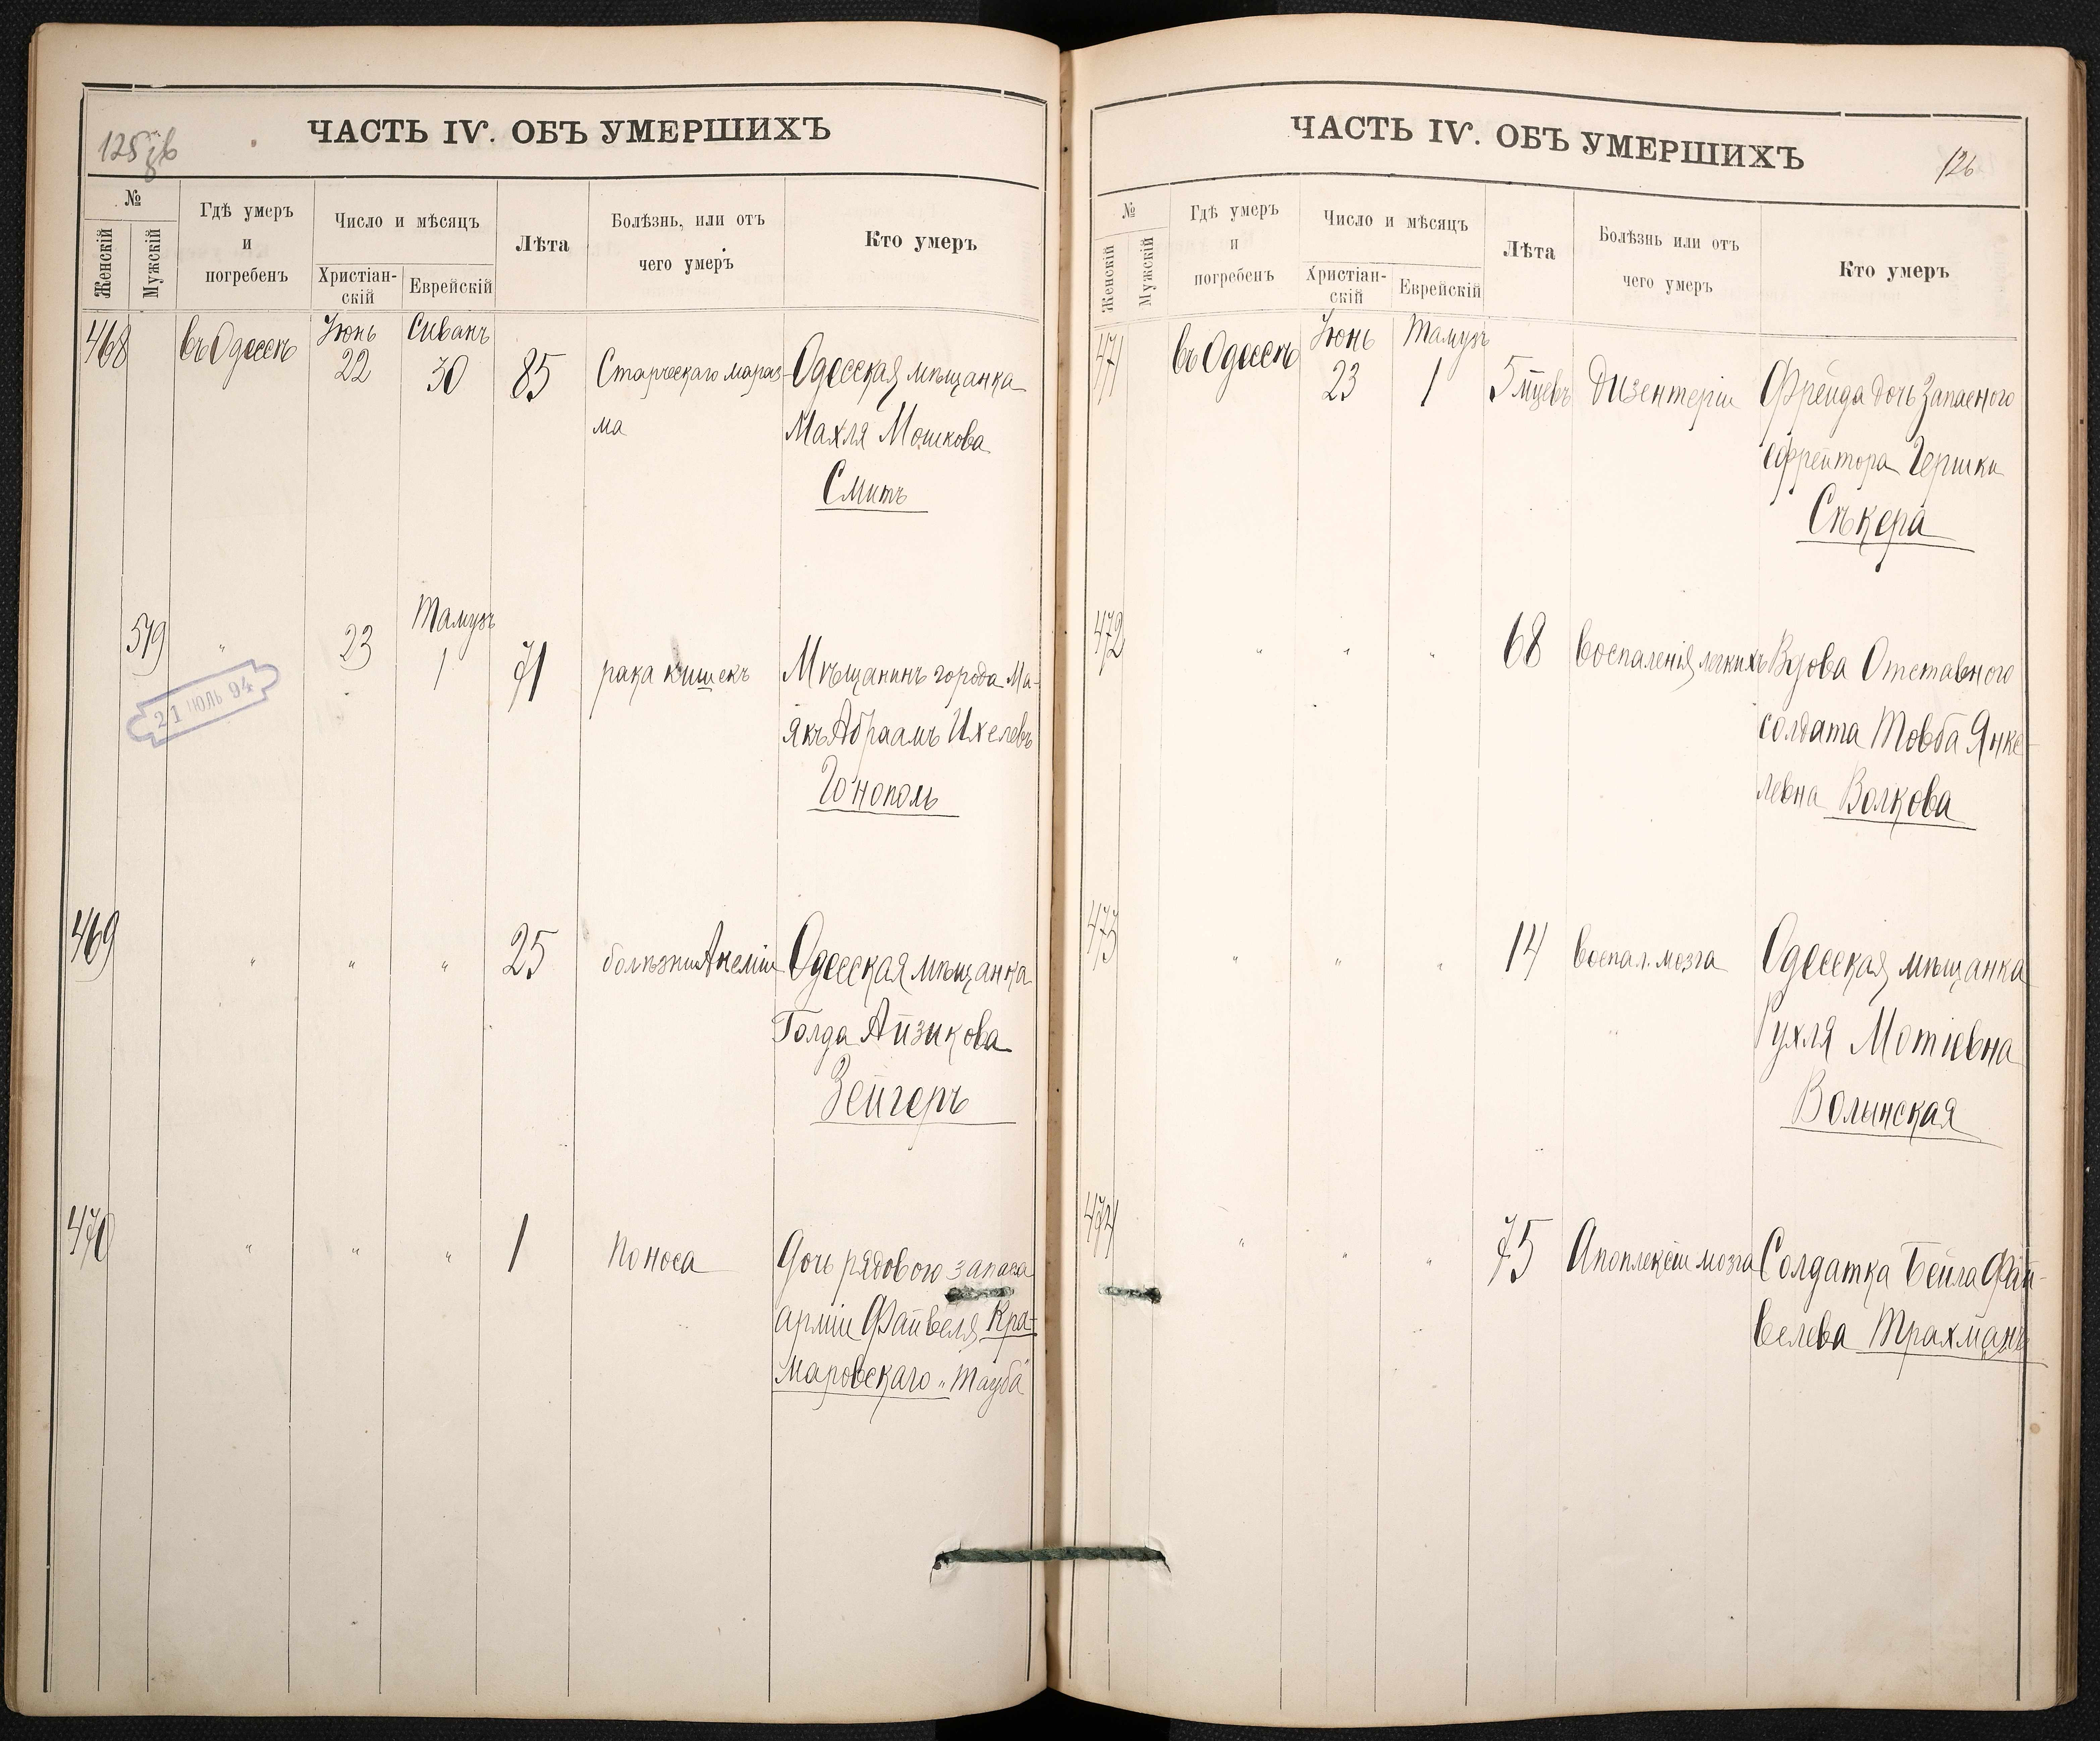 125 об
ЧАСТЬ IV. ОБЪ УМЕРШИХЪ
№
Женскій
Мужскій
Гдѣ умеръ
и
погребенъ
Число и мѣсяцъ
Христіан-
скій
Еврейскій
Лѣта
Болѣзнь, или отъ
чего умеръ
Кто умеръ
468 въ Одессѣ Іюнь 22 Сиванъ 30 85 Старческаго мараз- Одесская мѣщанка
ма Махля Мошкова
Смитъ
519 " 23 Тамузъ 1 71 рака кишекъ Мѣщанинъ города Ма-
якъ Абраамъ Ихелевъ
Гонополь
21 ІЮЛЬ 94
469 " " " 25 болѣзни Анеміи Одесская мѣщанка
Голда Айзикова
Зейгеръ
470 " " " 1 Поноса Дочь рядового запаса
арміи Файвеля Кра-
маровскаго „Тауба"
ЧАСТЬ IV. ОБЪ УМЕРШИХЪ
126
№
Женскій
Мужскій
Гдѣ умеръ
и
погребенъ
Число и мѣсяцъ
Христіан-
скій
Еврейскій
Лѣта
Болѣзнь или отъ
чего умеръ
Кто умеръ
471 въ Одессѣ Іюнь 23 Тамузъ 1 5 мцевъ Дизентеріи Фрейда дочь Запасного
ефрейтора Гершки
Сѣкера
472 " " " 68 воспаленія легкихъ Вдова Отставного
солдата Товба Янке-
левна Волкова
473 " " " 14 воспал. мозга Одесская мѣщанка
Рухля Мотіевна
Волынская
474 " " " 75 Апоплексіи мозга Солдатка Бейла Фай-
велева Трахманъ